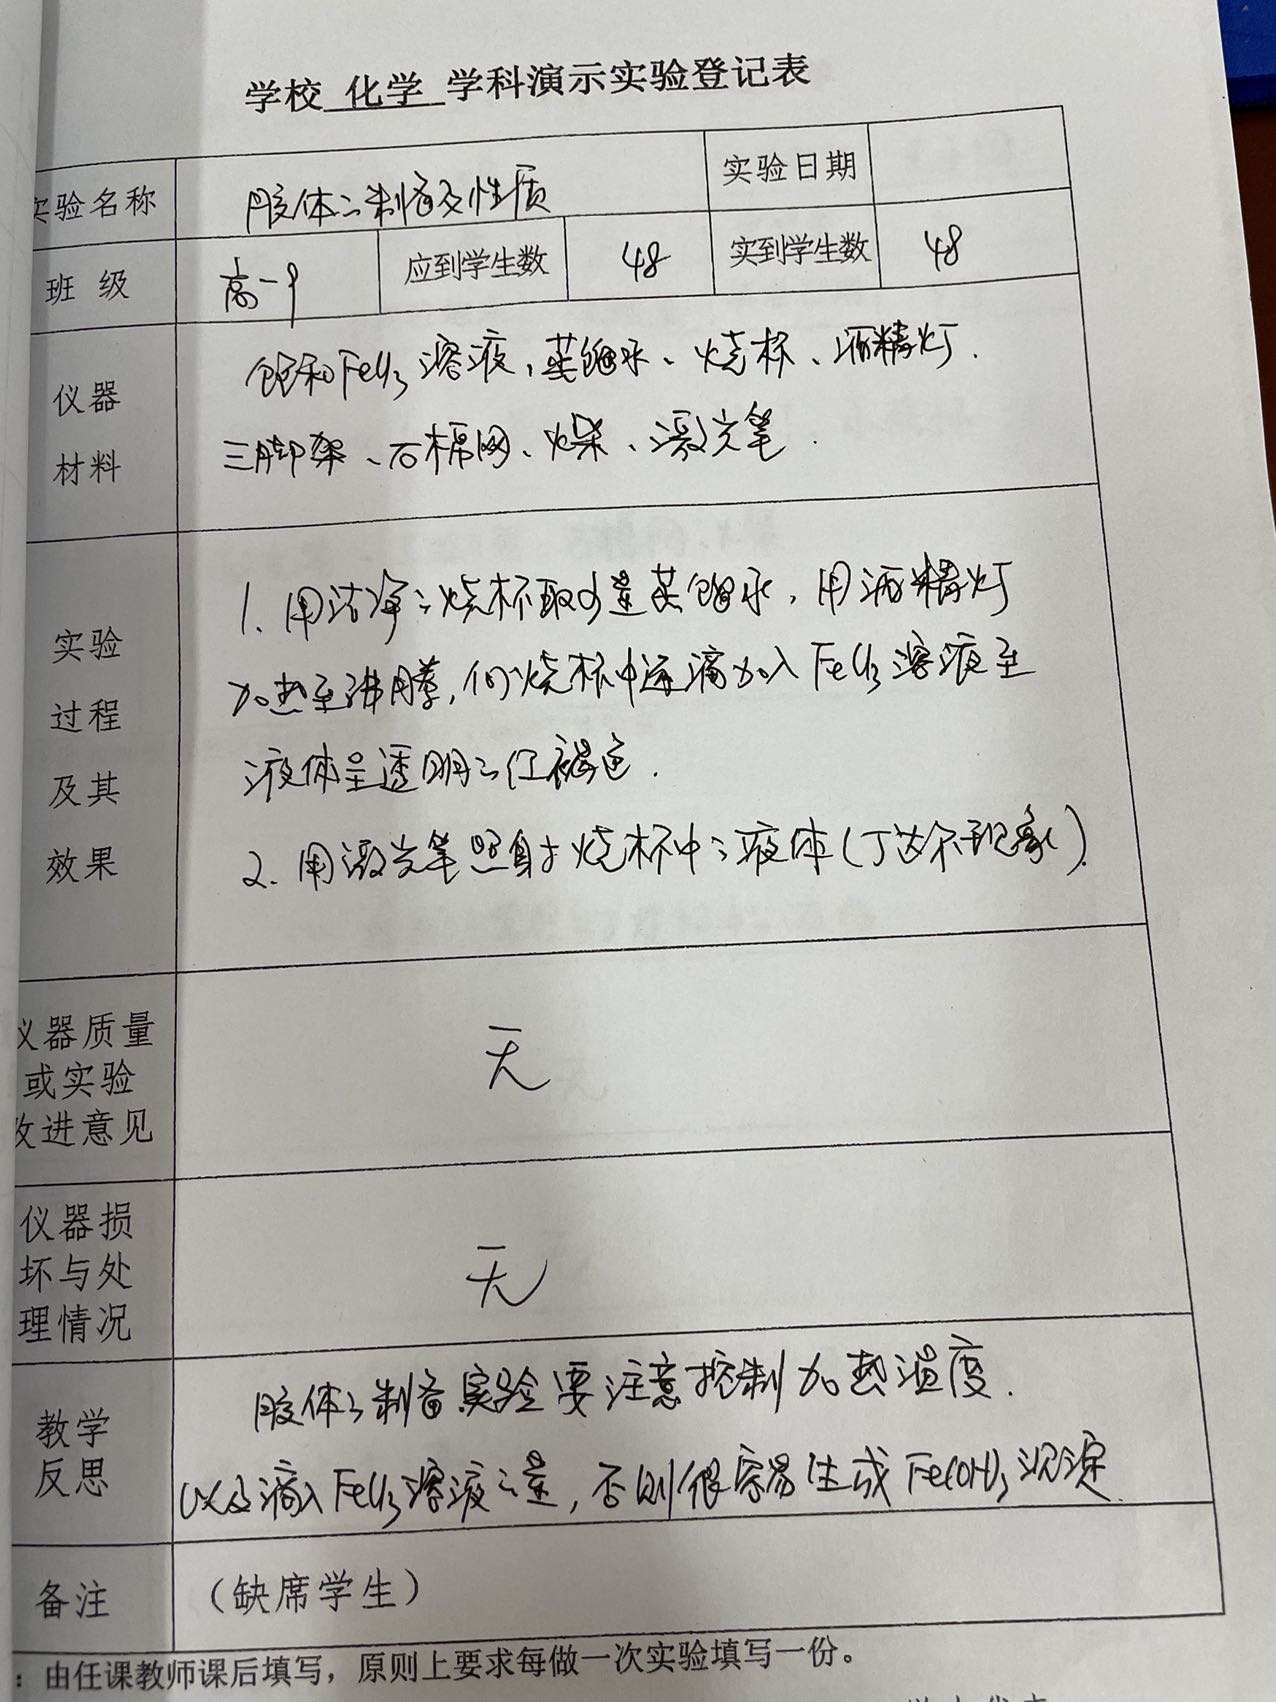 学校 化学 学科演示实验登记表
实验名称 胶体之制备及性质 实验日期
班 级 高一9 应到学生数 48 实到学生数 48
仪器
材料
饱和FeCl3溶液、蒸馏水、烧杯、酒精灯.
三脚架、石棉网、火柴、激光笔.
实验
过程
及其
效果
1. 用洁净之烧杯取少量蒸馏水,用酒精灯
加热至沸腾,向烧杯中逐滴加入FeCl3溶液至
液体呈透明之红褐色.
2. 用激光笔照射烧杯中之液体(丁达尔现象).
仪器质量
或实验
改进意见
无
仪器损
坏与处
理情况
无
教学
反思
胶体之制备实验要注意控制加热温度.
以及滴入FeCl3溶液之量,否则很容易生成Fe(OH)3沉淀.
备注 (缺席学生)
:由任课教师课后填写,原则上要求每做一次实验填写一份。